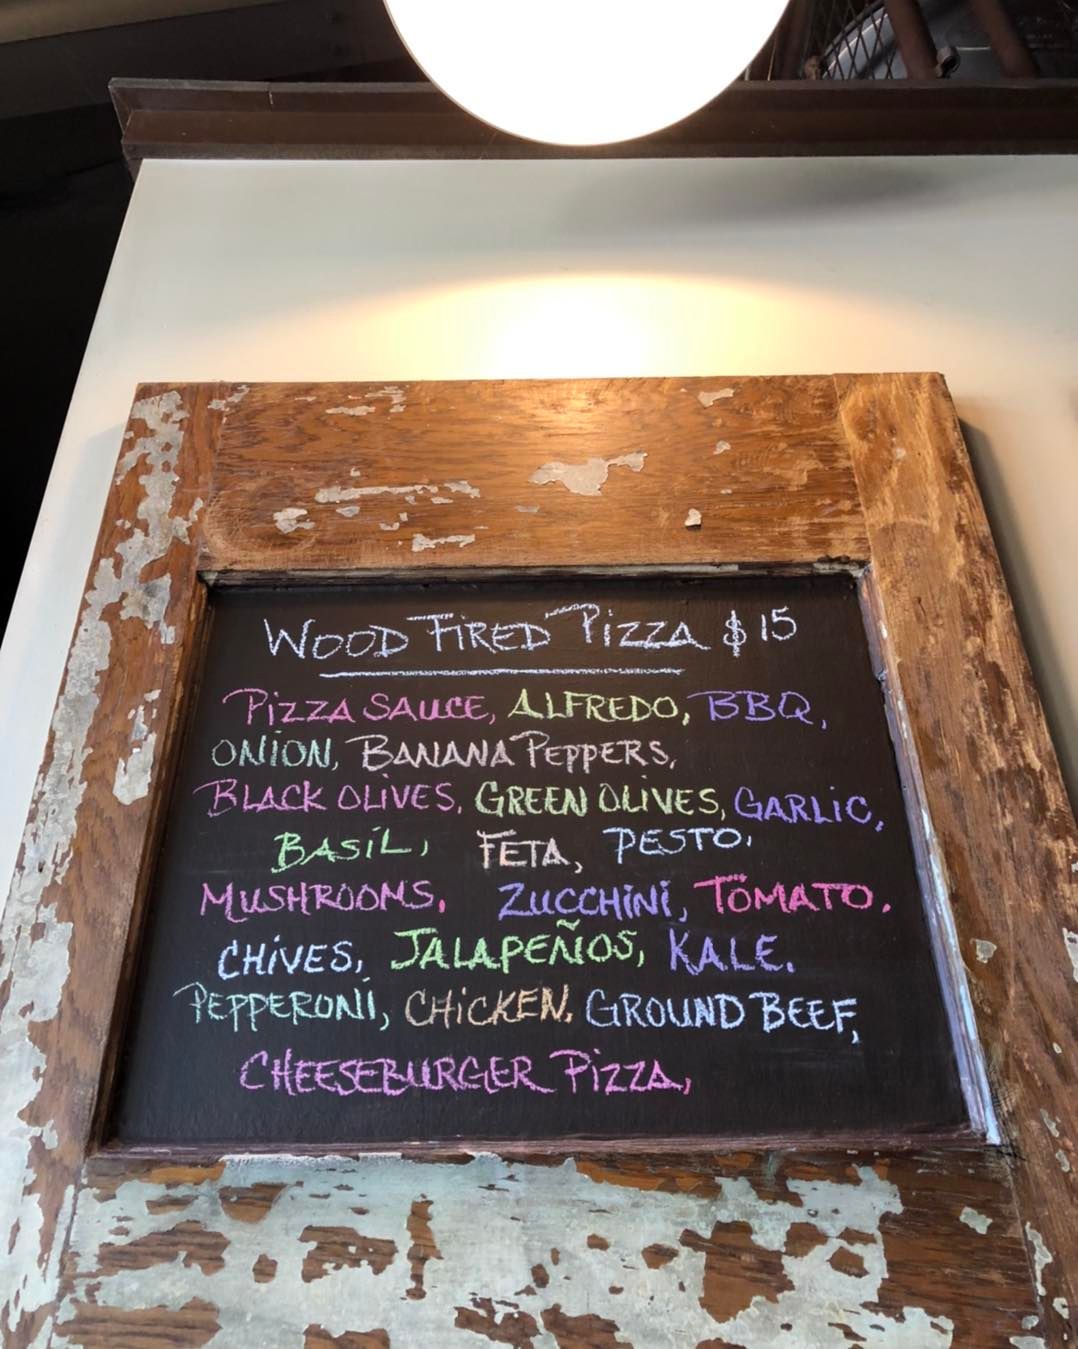 WOOD FIRED PIZZA $15
PIZZA SAUCE, ALFREDO, BBQ,
ONION, BANANA PEPPERS,
BLACK OLIVES, GREEN OLIVES, GARLIC,
BASIL, FETA, PESTO,
MUSHROOMS, ZUCCHINI, TOMATO,
CHIVES, JALAPEÑOS, KALE,
PEPPERONI, CHICKEN, GROUND BEEF,
CHEESEBURGER PIZZA,